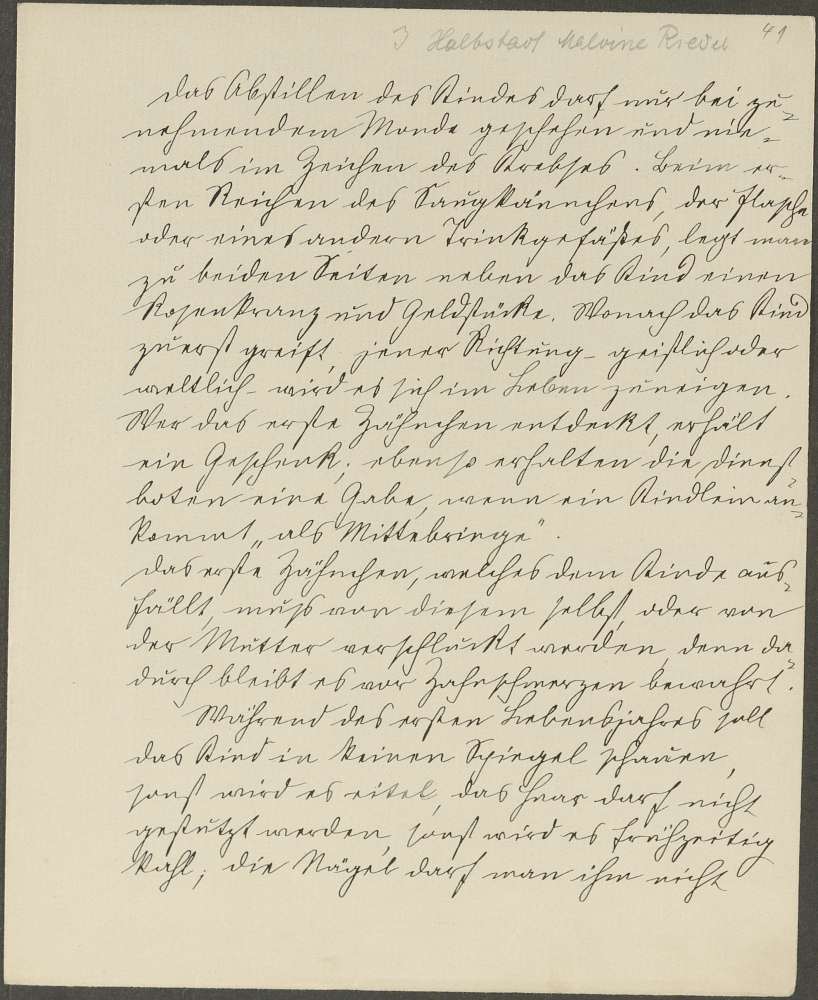 J Halbstadt Malvine Riedel 41
Das Abstillen des Kindes darf nur bei zu-
nehmendem Monde geschehen und nie-
mals im Zeichen des Krebses. Beim er-
sten Reichen des Saugkännchens, der Flasche
oder eines andern Trinkgefäßes, legt man
zu beiden Seiten neben das Kind einen
Rosenkranz und Geldstücke. Wonach das Kind
zuerst greift, jener Richtung - geistlich oder
weltlich - wird es sich im Leben zuneigen.
Wer das erste Zähnchen entdeckt, erhält
ein Geschenk; ebenso erhalten die Dienst-
boten eine Gabe, wenn ein Kindlein an-
kommt „als Mittebringe".
Das erste Zähnchen, welches dem Kinde aus-
fällt, muß von diesem selbst, oder von
der Mutter verschluckt werden, denn da-
durch bleibt es vor Zahnschmerzen bewahrt.
Während des ersten Lebensjahres soll
das Kind in keinen Spiegel schauen,
sonst wird es eitel, das Haar darf nicht
gestutzt werden, sonst wird es frühzeitig
kahl; die Nägel darf man ihm nicht